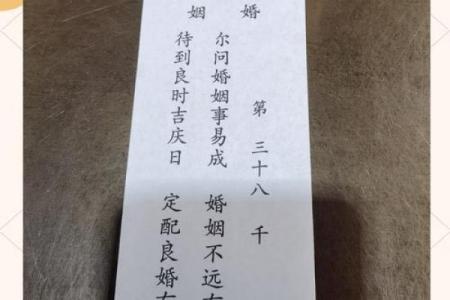 婚姻
第三十八千
尔问婚姻事易成 婚姻不远
待到良时吉庆日 定配良婚